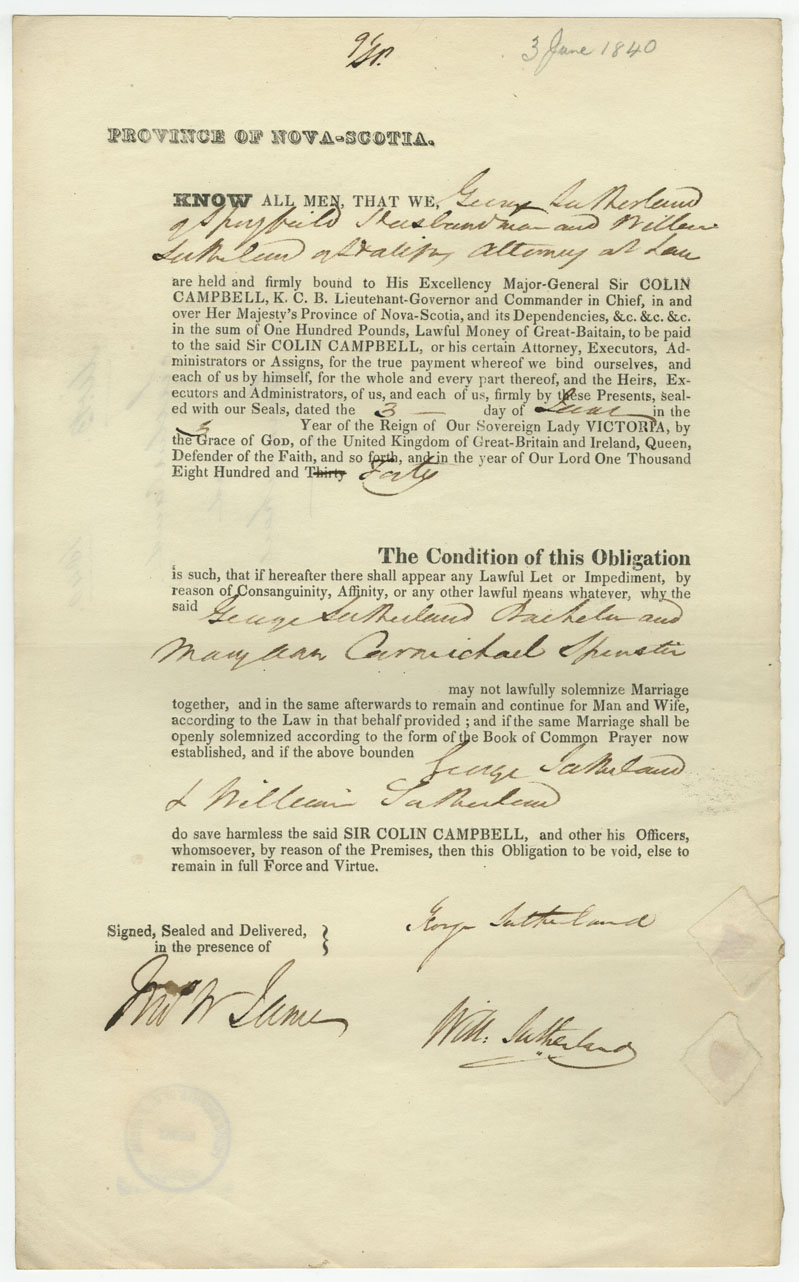 3 June 1840
PROVINCE OF NOVA-SCOTIA.
KNOW ALL MEN, THAT WE, George Sutherland
of Husbandman and William
Sutherland of Halifax Attorney at Law
are held and firmly bound to His Excellency Major-General Sir COLIN
CAMPBELL, K. C. B. Lieutenant-Governor and Commander in Chief, in and
over Her Majesty's Province of Nova-Scotia, and its Dependencies, &c. &c. &c.
in the sum of One Hundred Pounds, Lawful Money of Great-Baitain, to be paid
to the said Sir COLIN CAMPBELL, or his certain Attorney, Executors, Ad-
ministrators or Assigns, for the true payment whereof we bind ourselves, and
each of us by himself, for the whole and every part thereof, and the Heirs, Ex-
ecutors and Administrators, of us, and each of us, firmly by these Presents, Seal-
ed with our Seals, dated the 3 — day of June in the
3 Year of the Reign of Our Sovereign Lady VICTORIA, by
the Grace of God, of the United Kingdom of Great-Britain and Ireland, Queen,
Defender of the Faith, and so forth, and in the year of Our Lord One Thousand
Eight Hundred and Thirty Forty
The Condition of this Obligation
is such, that if hereafter there shall appear any Lawful Let or Impediment, by
reason of Consanguinity, Affinity, or any other lawful means whatever, why the
said George Sutherland Bachelor and
Mary Ann Carmichael Spinster
may not lawfully solemnize Marriage
together, and in the same afterwards to remain and continue for Man and Wife,
according to the Law in that behalf provided ; and if the same Marriage shall be
openly solemnized according to the form of the Book of Common Prayer now
established, and if the above bounden George Sutherland
& William Sutherland
do save harmless the said SIR COLIN CAMPBELL, and other his Officers,
whomsoever, by reason of the Premises, then this Obligation to be void, else to
remain in full Force and Virtue.
Signed, Sealed and Delivered,
in the presence of
George Sutherland
W James
Will: Sutherland